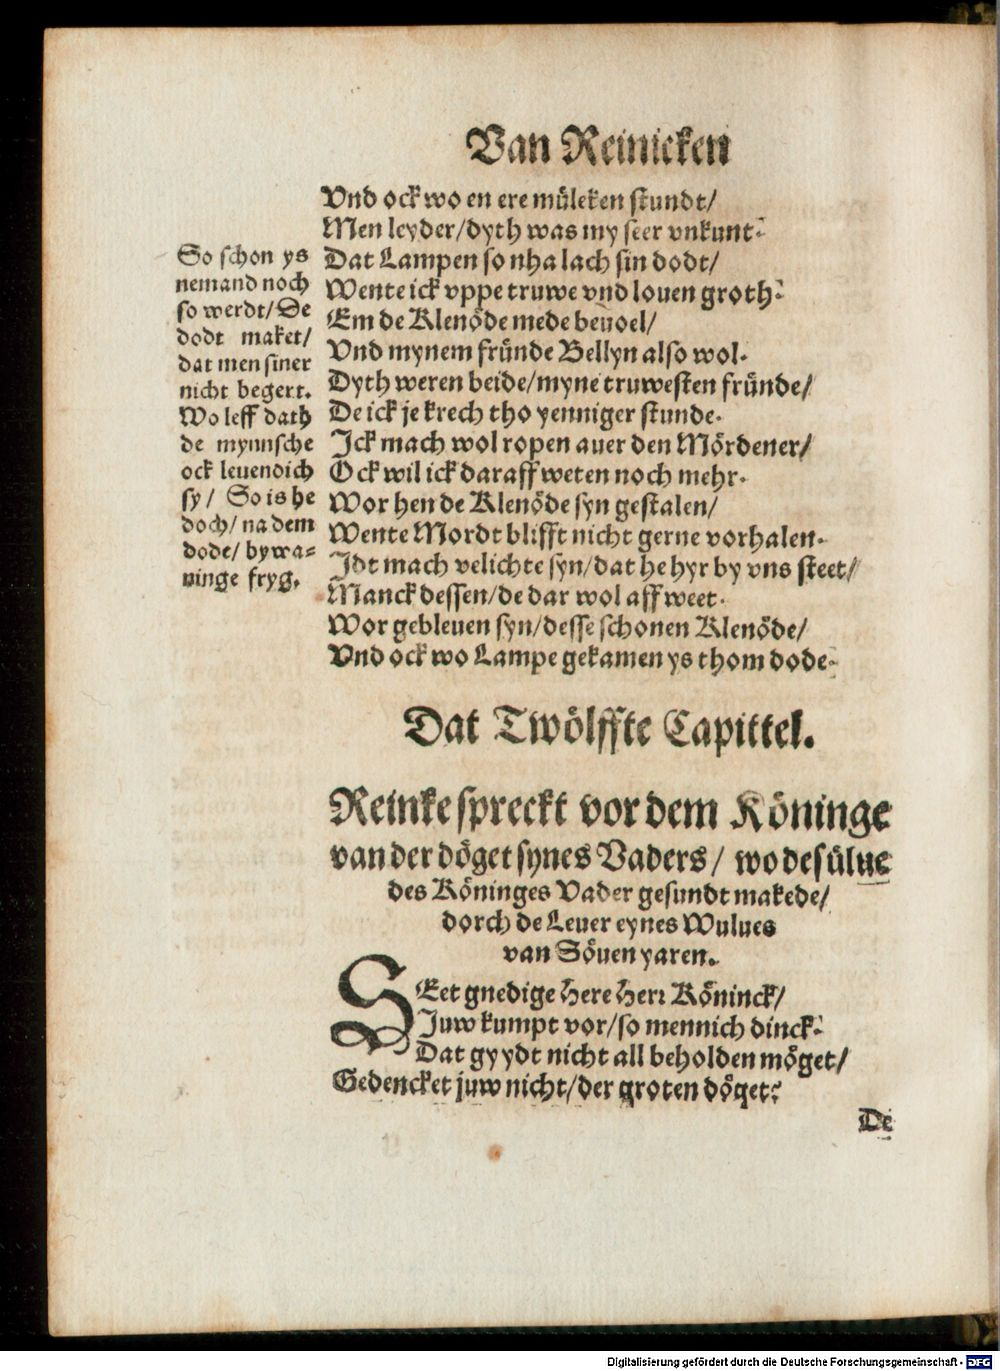 Van Reinicken
Vnd ock wo en ere müleken stundt/
Men leyder/dyth was my seer vnkunt.
Dat Lampen so nha lach sin dodt/
Wente ick vppe truwe vnd louen groth.
Em de Klenöde mede beuoel/
Vnd mynem fründe Bellyn also wol.
Dyth weren beide/myne truwesten fründe/
De ick je krech tho yenniger stunde.
Ick mach wol ropen auer den Mördener/
Ock wil ick daraff weten noch mehr.
Wor hen de Klenöde syn gestalen/
Wente Mordt blifft nicht gerne vorhalen.
Idt mach velichte syn/dat he hyr by vns steet/
Manck dessen/de dar wol aff weet.
Wor gebleuen syn/desse schonen Klenöde/
Vnd ock wo Lampe gekamen ys thom dode.
So schon ys
nemand noch
so werdt/De
dodt maket/
dat men siner
nicht begert.
Wo leff dath
de mynnsche
ock leuendich
sy/ So is he
doch/na dem
dode/bywa-
ninge fryg.
Dat Twölffte Capittel.
Reinke spreckt vor dem Köninge
van der döget synes Vaders/ wo desülue
des Köninges Vader gesundt makede/
dorch de Leuer eynes Wulues
van Söuen yaren.
SEet gnedige Here Herr Köninck/
Juw kumpt vor/so mennich dinck.
Dat gy ydt nicht all beholden möget/
Gedencket juw nicht/der groten döget?
De
Digitalisierung gefördert durch die Deutsche Forschungsgemeinschaft - DFG